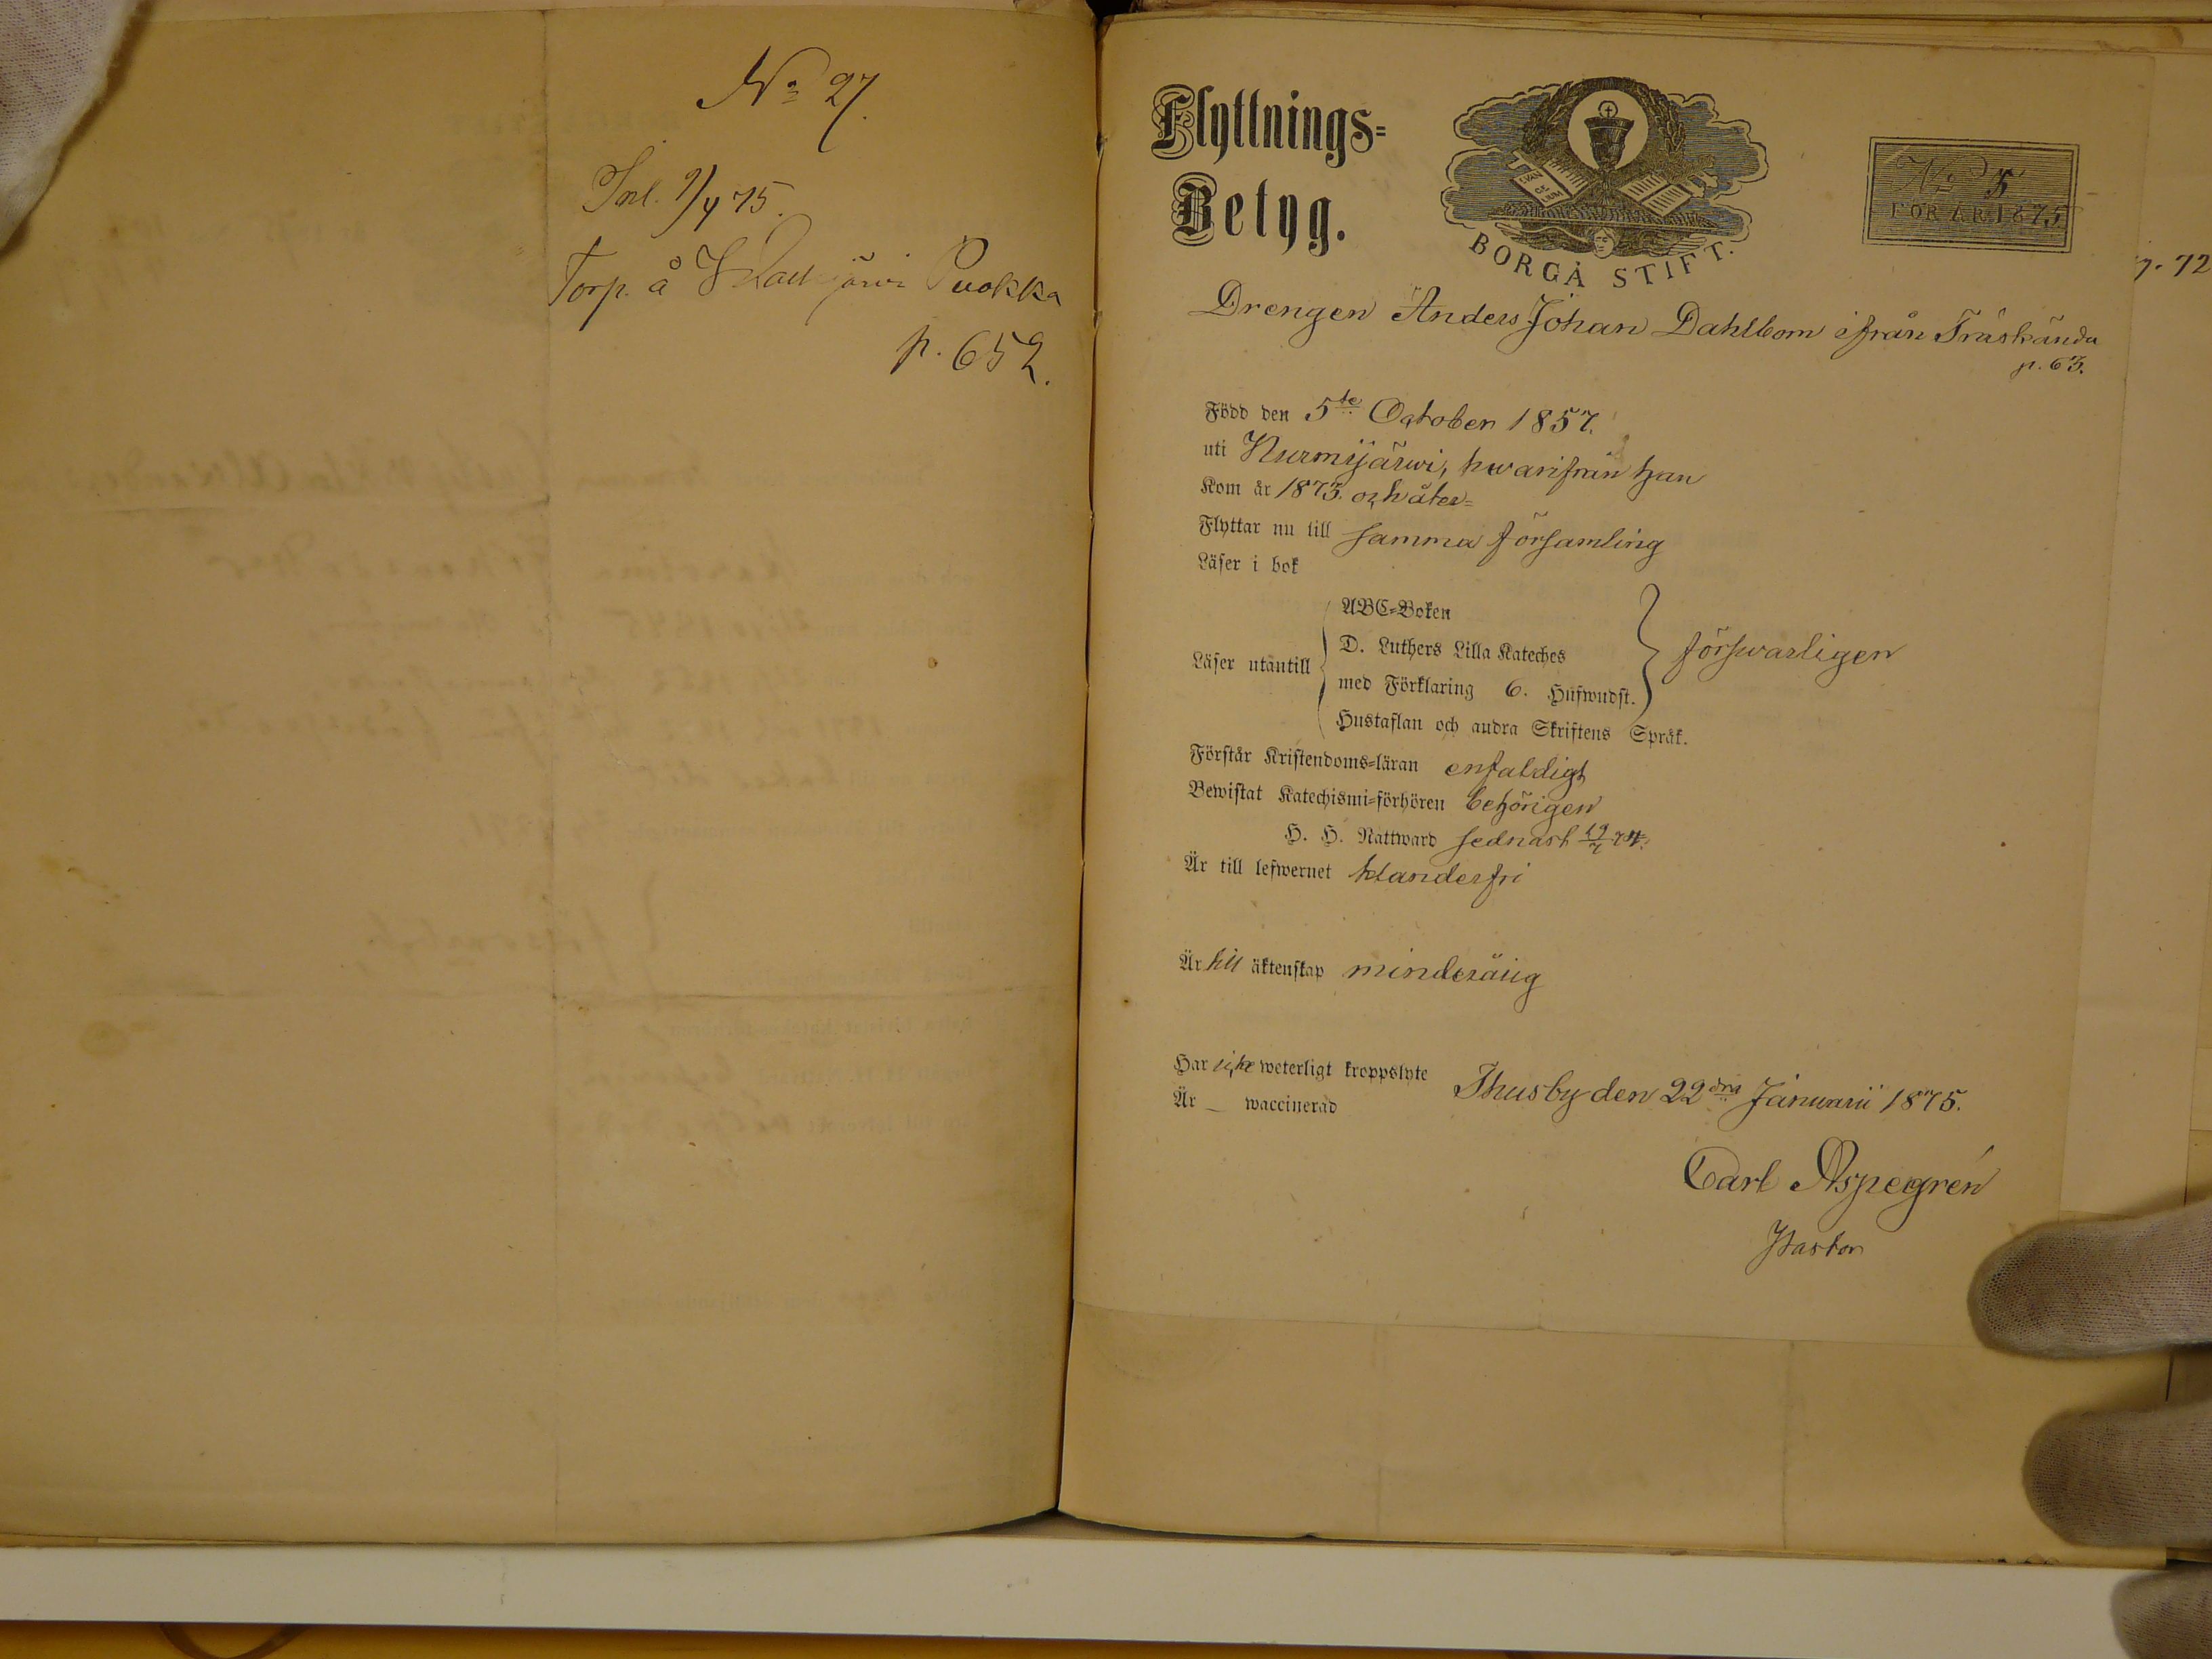 No 27.
Inl. 9/4 75.
Torp. å Puokka
p. 652.
Flyttnings=
Betyg.
EVAN
GE
LIUM
BORGÅ STIFT.
No 5
FÖR ÅR 1875
p. 72
Drengen Anders Johan Dahlbom ifrån Träskända
p. 63.
Född den 5te October 1857.
uti Nurmijärwi, hwarifrån han
Kom år 1873. och åter=
Flyttar nu till samma församling
Läser i bok
ABC=Boken
D. Luthers Lilla Kateches
Läser utantill
med Förklaring 6. Hufwudst.
försvarligen
Hustaflan och andra Skriftens Språk.
Förstår Kristendoms=läran enfaldigt
Bewistat Katechismi=förhören behörigen
H. H. Nattward sednast 19/7 74.
Är till lefwernet klanderfri
Är till äktenskap minderårig
Har icke weterligt kroppslyte
Är — waccinerad
Thusby den 22dra Januarii 1875.
Carl Aspegrén
Pastor